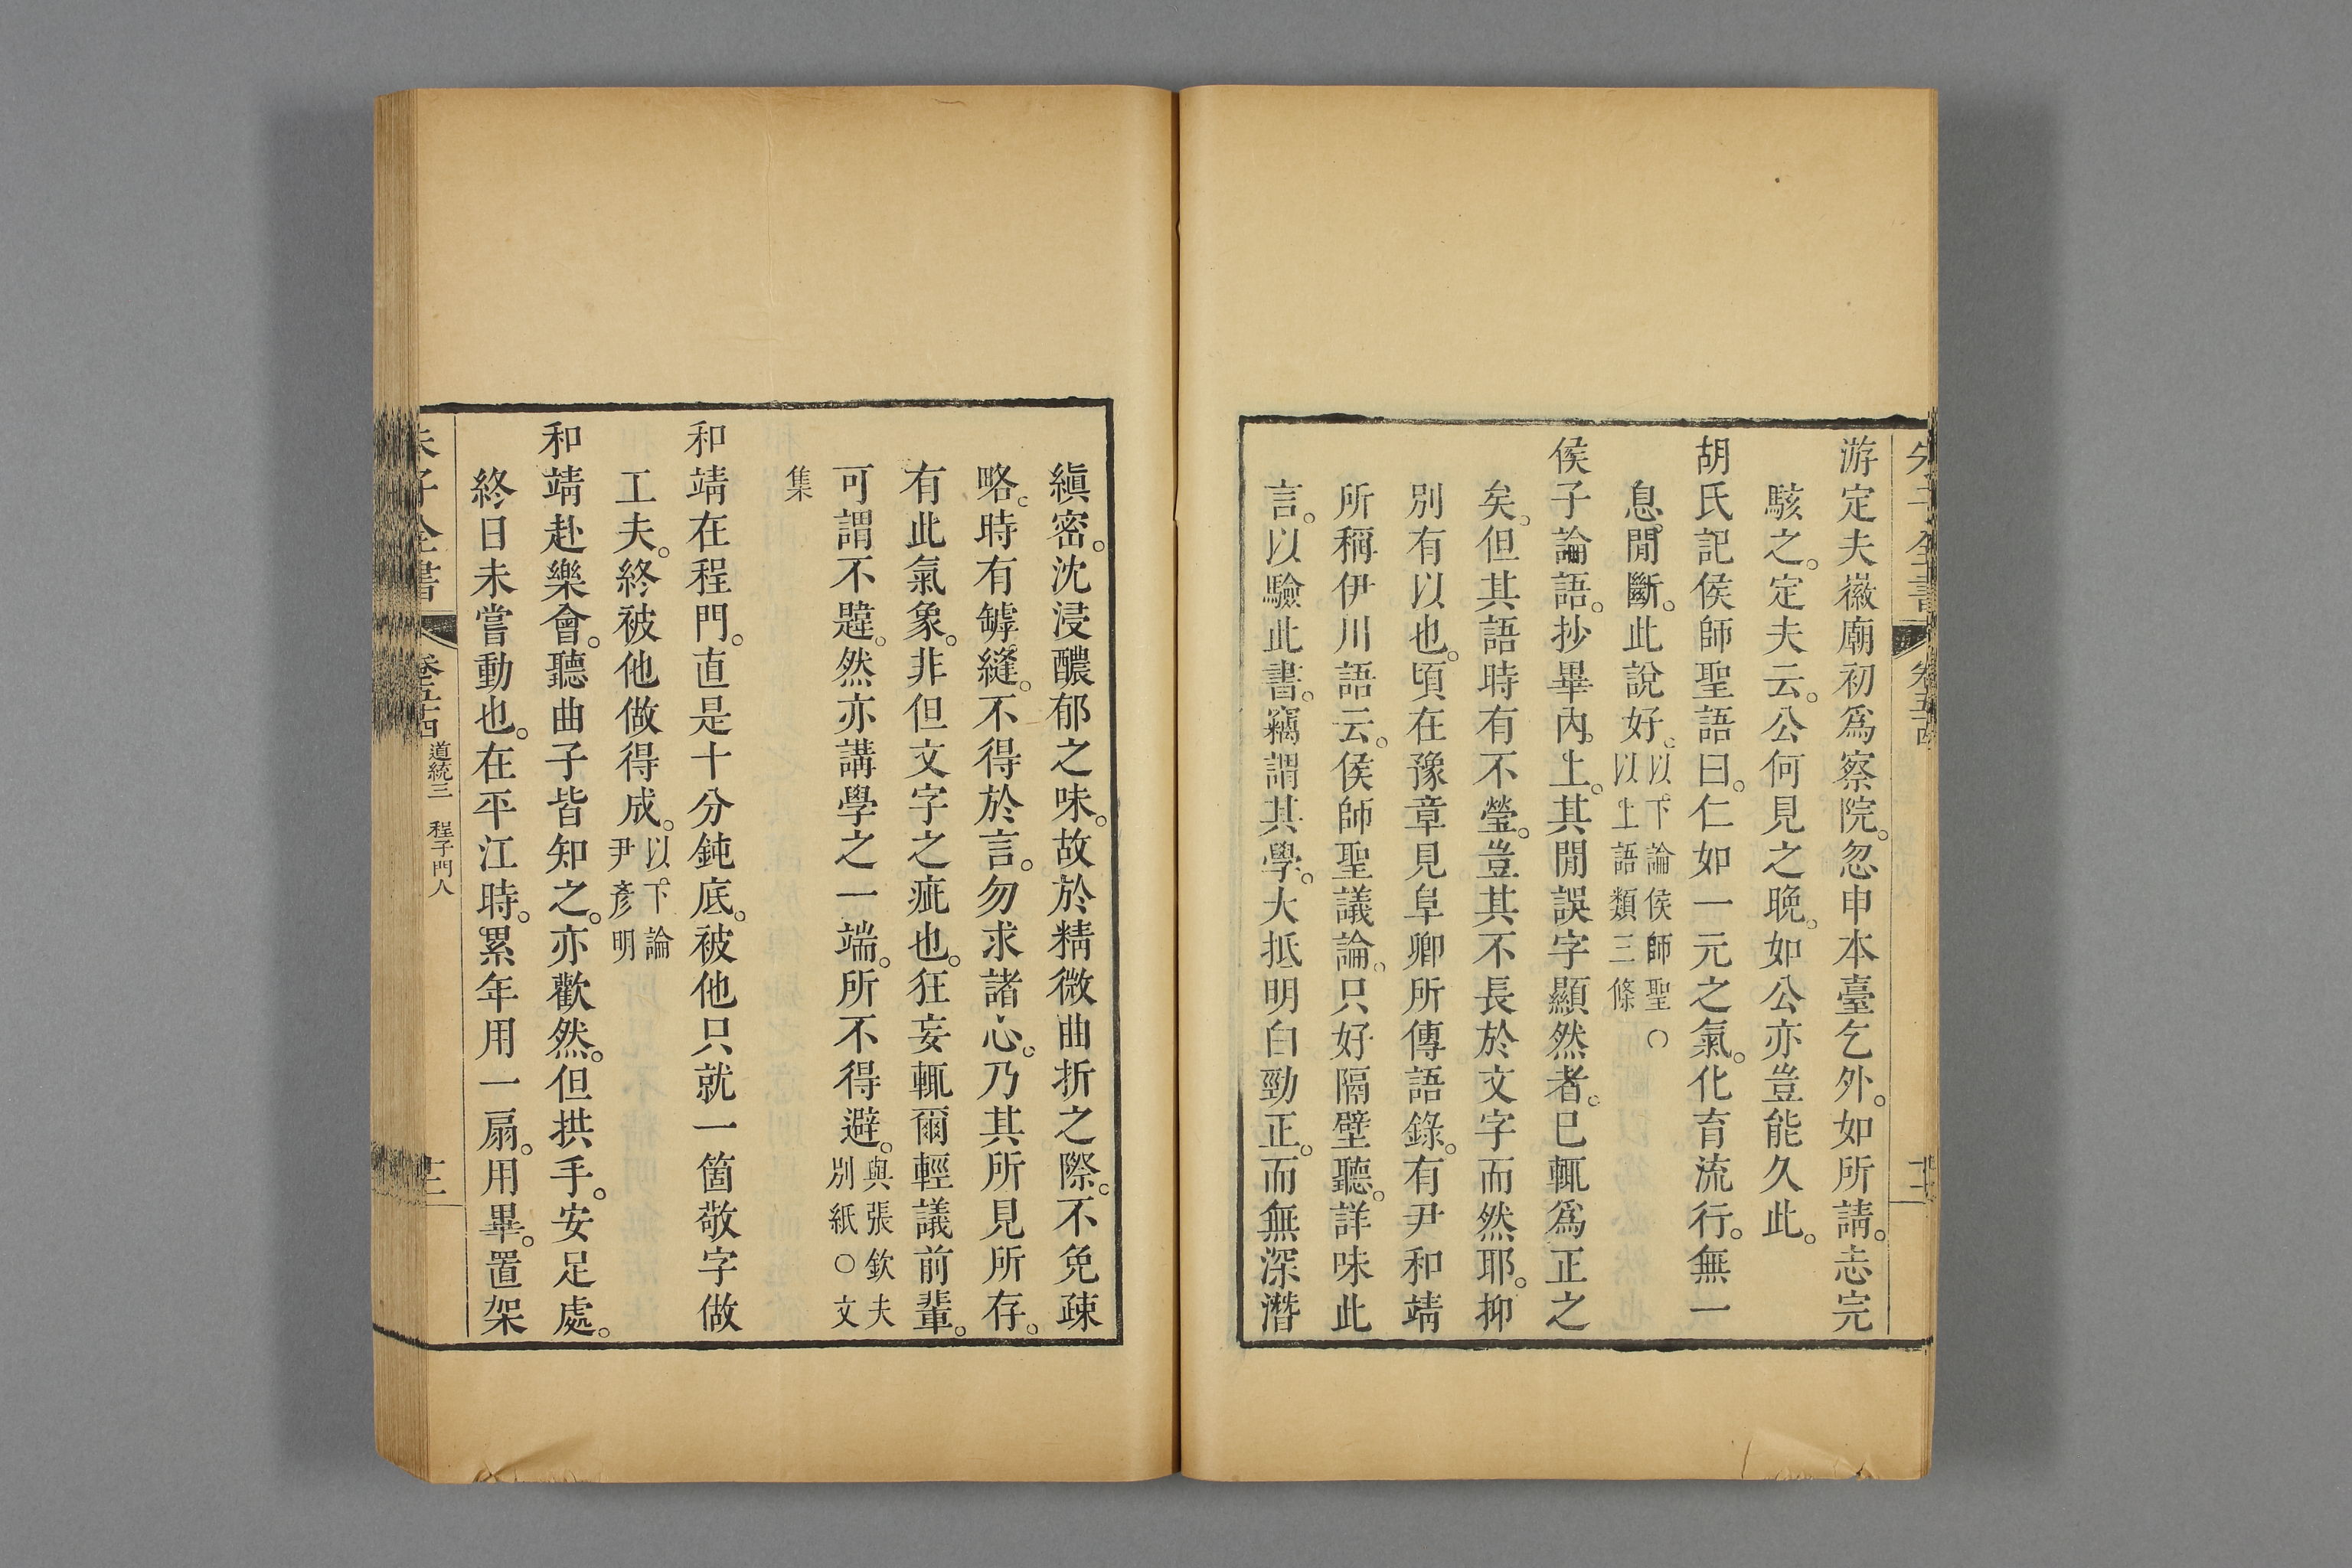 游定夫徽廟初爲察院。忽申本臺乞外。如所請。志完
駭之。定夫云。公何見之晚。如公亦豈能久此。
胡氏記侯師聖語曰。仁如一元之氣。化育流行。無一
息閒斷。此說好。以下論侯師聖〇以上語類三條
侯子論語。抄畢內上。其閒誤字顯然者。已輒爲正之
矣。但其語時有不瑩。豈其不長於文字而然耶。抑
別有以也。頃在豫章見阜卿所傳語錄。有尹和靖
所稱伊川語云。侯師聖議論。只好隔壁聽。詳味此
言。以驗此書。竊謂其學。大抵明白勁正。而無深潛
縝密。沈浸醲郁之味。故於精微曲折之際。不免疎
略。時有罅縫。不得於言。勿求諸心。乃其所見所存。
有此氣象。非但文字之疵也。狂妄輒爾輕議前輩。
可謂不韙。然亦講學之一端。所不得避。與張欽夫別紙〇文
集
和靖在程門。直是十分鈍底。被他只就一箇敬字做
工夫。終被他做得成。以下論尹彥明
和靖赴樂會。聽曲子皆知之。亦歡然。但拱手。安足處。
終日未嘗動也。在平江時。累年用一扇。用畢。置架
朱子全書 卷五十四 道統三 程子門人